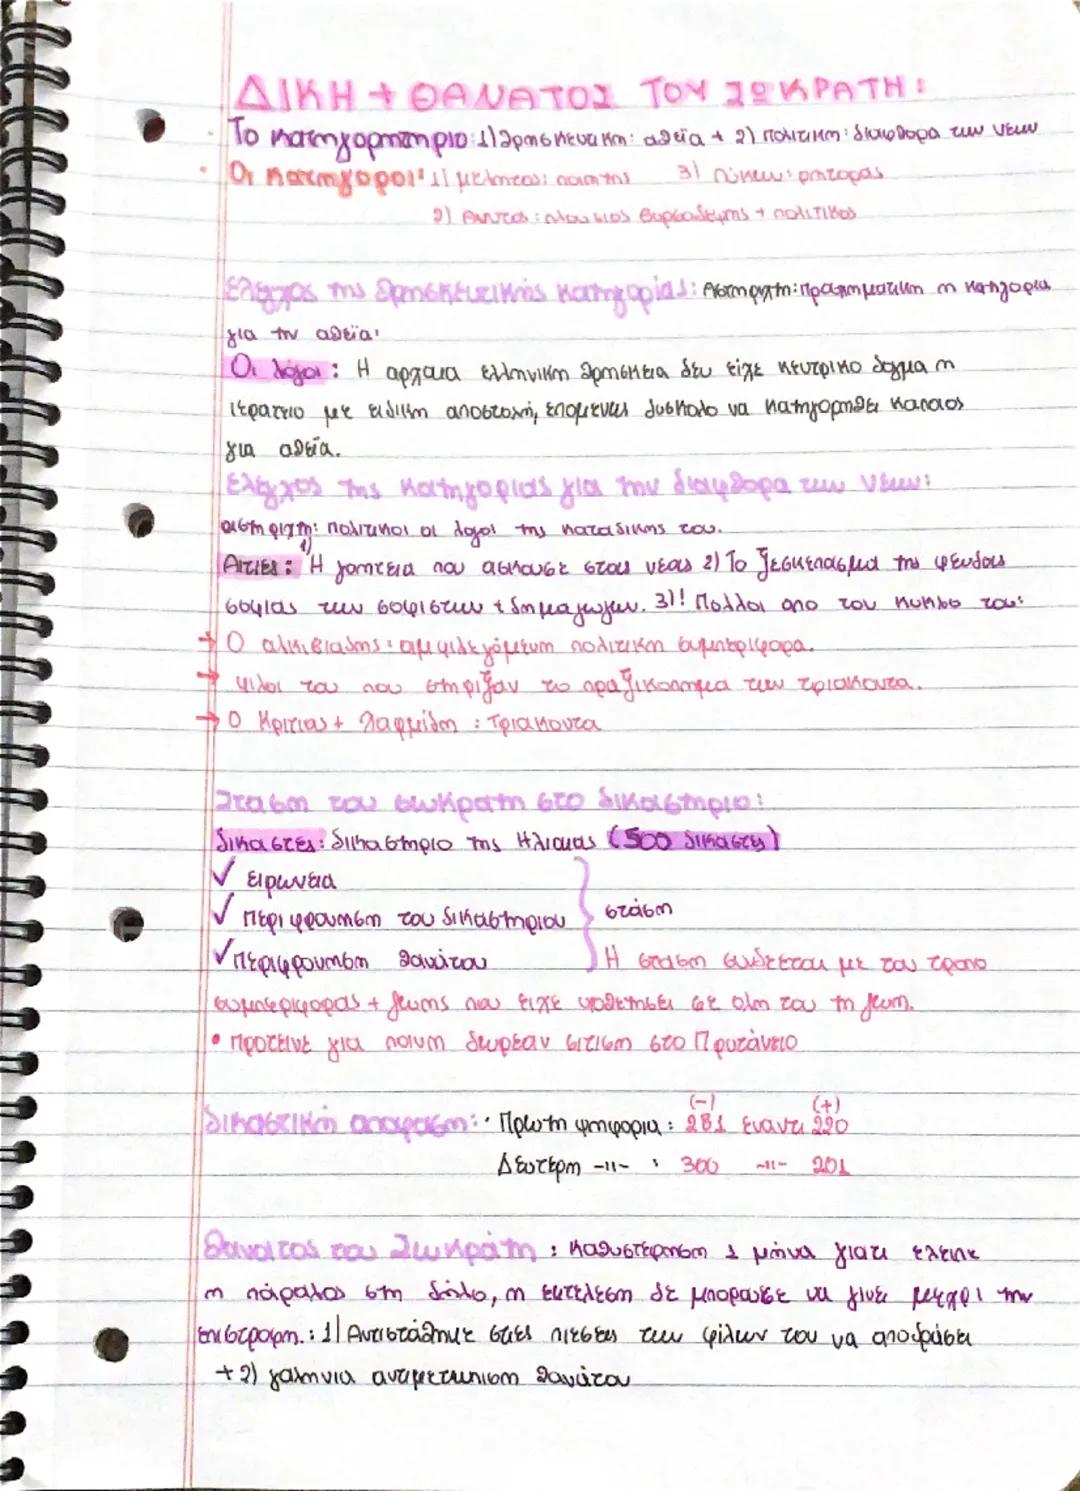 ΔΙΚΗ + ΘΑΝΑΤΟΣ ΤΟΥ ΣΩΚΡΑΤΗ:
Το κατηγορητηριο: 1) θρησκευτικη: αθεΐα + 2) πολιτικη: διαφθορα των νεων
Οι κατηγοροι: 1) μελητος: ποιητης 3) Λύκων: ρητορας
2) Ανυτος: πλουσιος βυρσοδεψης + πολιτικος
Ελεγχος της θρησκευτικής κατηγορίας: Αστηριχτη: πραγματικη η κατηγορια
για την αθεϊα.
Οι λόγοι: Η αρχαια ελληνικη θρησκεια δεν ειχε κεντρικο δογμα η
ιερατειο με ειδικη αποστολή, επομενως δυσκολο να κατηγορηθει καποιος
για αθεΐα.
Ελεγχος της κατηγοριας για την διαφθορα των νεων:
αστηριχτη: πολιτικοι οι λογοι της καταδικης του.
Αιτιες: 1) Η γοητεια που ασκουσε στους νεους 2) Το ξεσκεπασμα της ψευδους
σοφιας των σοφιστων + δημαγωγων. 3)! Πολλοι απο τον κυκλο του:
→ Ο αλκιβιαδης: αμφιλεγόμενη πολιτικη συμπεριφορα.
→ φιλοι του που στηριξαν το πραξικοπημα των τριακοντα.
→ Ο Κριτιας + Χαρμίδη: Τριακοντα
Σταση του σωκρατη στο δικαστηριο:
δικαστες: δικαστηριο της Ηλιαιας (500 δικαστες)
✓ ειρωνεια
✓ περιφρονηση του δικαστηριου } στάση
✓ περιφρονηση θανάτου } Η σταση συνδεεται με τον τροπο
συμπεριφορας + ζωης που ειχε υοθετησει σε ολη του τη ζωη.
• προτεινε για ποινη δωρεαν σιτιση στο Πρυτάνειο
(-) (+)
δικαστικη αποφαση: • Πρωτη ψηφορια: 281 εναντι 220
Δευτερη -11- : 300 -11- 201
Θανατος του Σωκράτη: καθυστερηση 1 μήνα γιατι ελειπε
η πάραλος στη δήλο, η εκτελεση δε μπορουσε να γινει μεχρι την
επιστροφη.: 1) Αντιστάθηκε στις πιεσεις των φίλων του να αποδράσει
+ 2) γαληνια αντιμετωπιση θανάτου